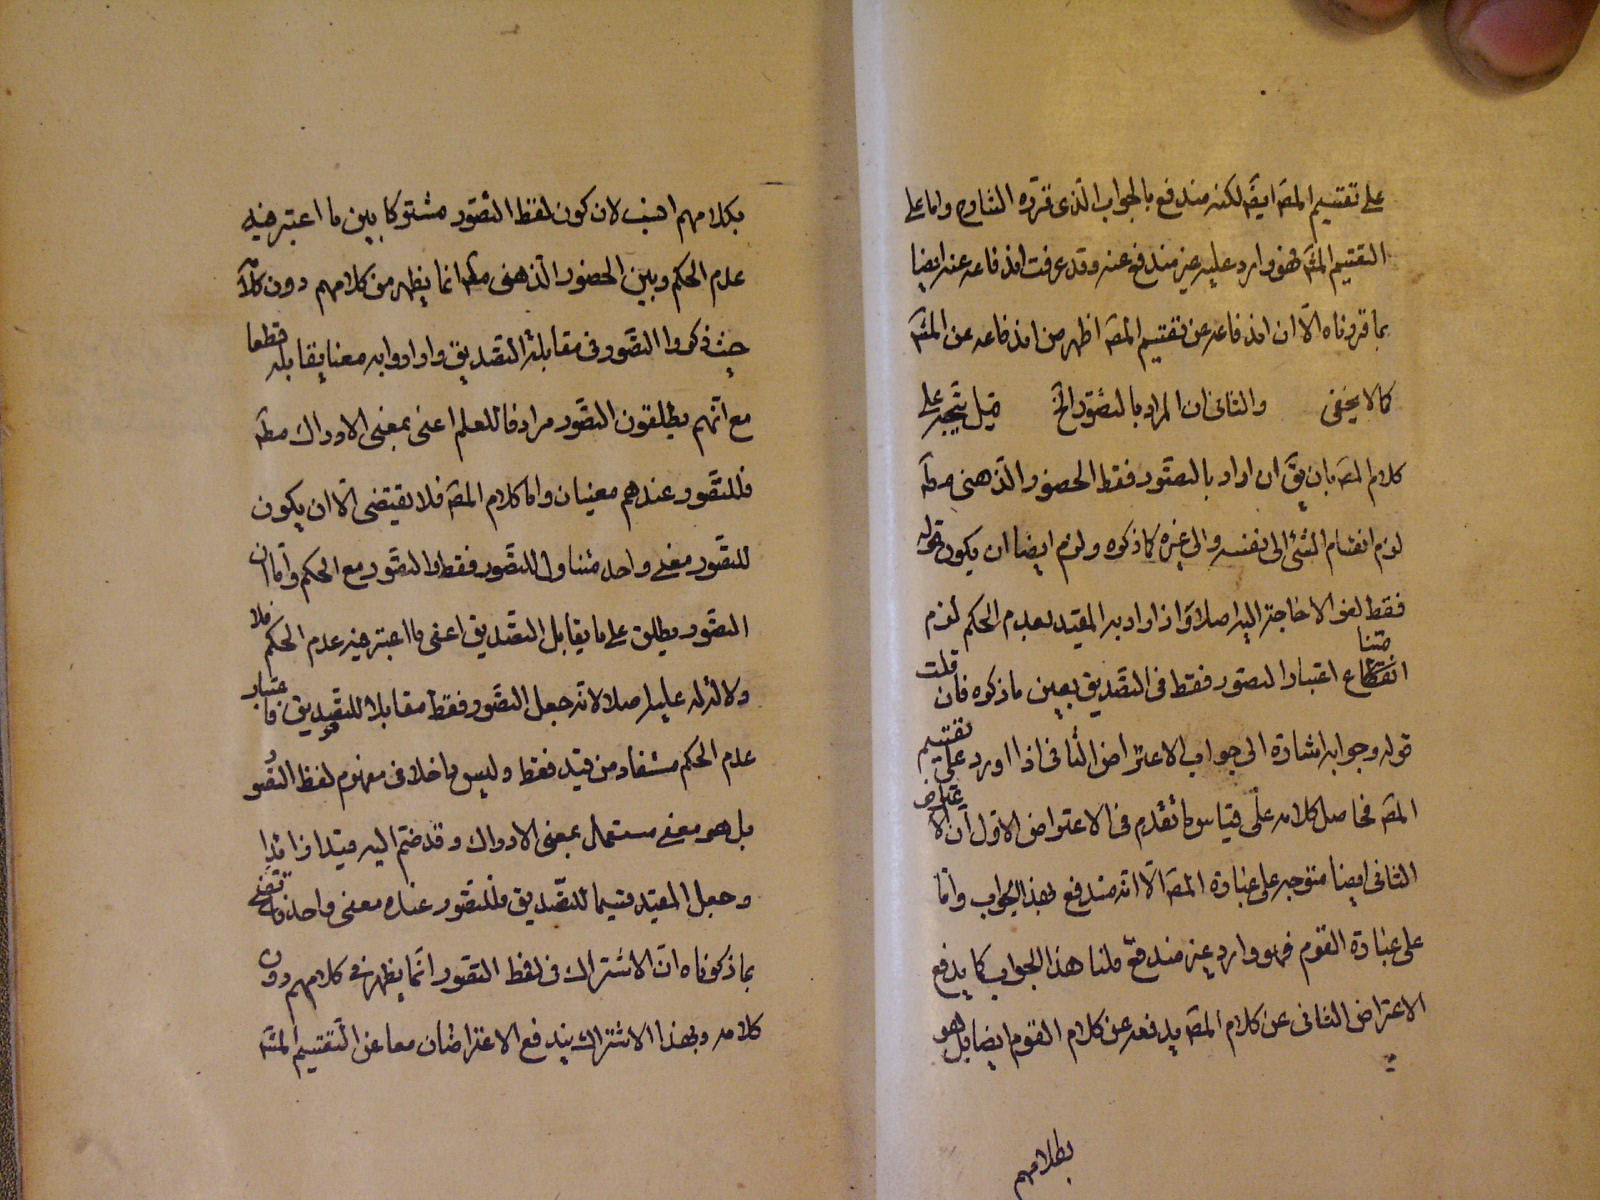 على تقسيم المصۤ ايضۤ لكنه مندفع بالجواب الّذى قرّره الشارح واما على
التقسيم المشۤ فهو وارد عليه غير مندفع عنه وقد عرفت اندفاعه عنه ايضا
بما قررناه الّا ان اندفاعه عن تقسيم المصۤ اظهر من اندفاعه عن المشۤ
كما لا يخفى والثانى ان المراد بالتصوّر الخ قيل يتّجه على
كلام المصۤ بان يقۤ ان اراد بالتصّور فقط الحضور الذّهنى مطۤ
لزم انقسام الشّئ الى نفسه والى غيره كما ذكره ولزم ايضا ان يكون قوله
فقط لغوا لا حاجة اليه اصلا واذا اراد به المقيّد بعدم الحكم لزم
امتناع اعتبار التصور فقط فى التصّديق بعين ما ذكره فان قلت
قوله وجوابه اشارة الى جواب الاعتراض الثانى اذا اورد على تقسيم
المصۤ فحاصل كلامه على قياس ما تقدم فى الاعتراض الاوّل انّ الاعتراض
الثانى ايضا متوجه على عبارة المصۤ الّا انّه مندفع بهذا الجواب وامّا
على عبارة القوم فهو وارد غير مندفع قلنا هذا الجواب كما يدفع
الاعتراض الثانى عن كلام المصۤ يدفعه عن كلام القوم ايضا بل هو
بكلامهم
بكلامهم انسب لان كون لفظ التصّور مشتركا بين ما اعتبر فيه
عدم الحكم وبين الحضور الذّهنى مطۤ انما يظهر من كلامهم دون كلامه
حيث ذكروا التصّور فى مقابلة التصّديق وارادوا به معنا يقابله قطعا
مع انّهم يطلقون التصّور مرادفا للعلم اعنى بمعنى الادراك مطۤ
فللتصّور عندهم معنيان وامّا كلام المصۤ فلا يقتضى الّا ان يكون
للتصّور معنى واحد متناول للتصّور فقط والتصّور مع الحكم وامّا ان
التصّور يطلق على ما يقابل التصّديق اعنى ما اعتبر فيه عدم الحكم فلا
دلالة له عليه اصلا لانّه جعل التصّور فقط مقابلا للتصّديق فاعتبار
عدم الحكم مستفاد من قيد فقط وليس داخلا فى مفهوم لفظ التصّور
بل هو معنى مستعمل بمعنى الادراك وقد ضمّ اليه قيدا زائدا
وجعل المقيّد قسيما للتصّديق فللتصّور عنده معنى واحد
بما ذكرناه انّ الاشتراك فى لفظ التصّور انّما يظهر فى كلامهم دون
كلامه وبهذا الاشتراك يندفع الاعتراضان معا عن التّقسيم المشۤ